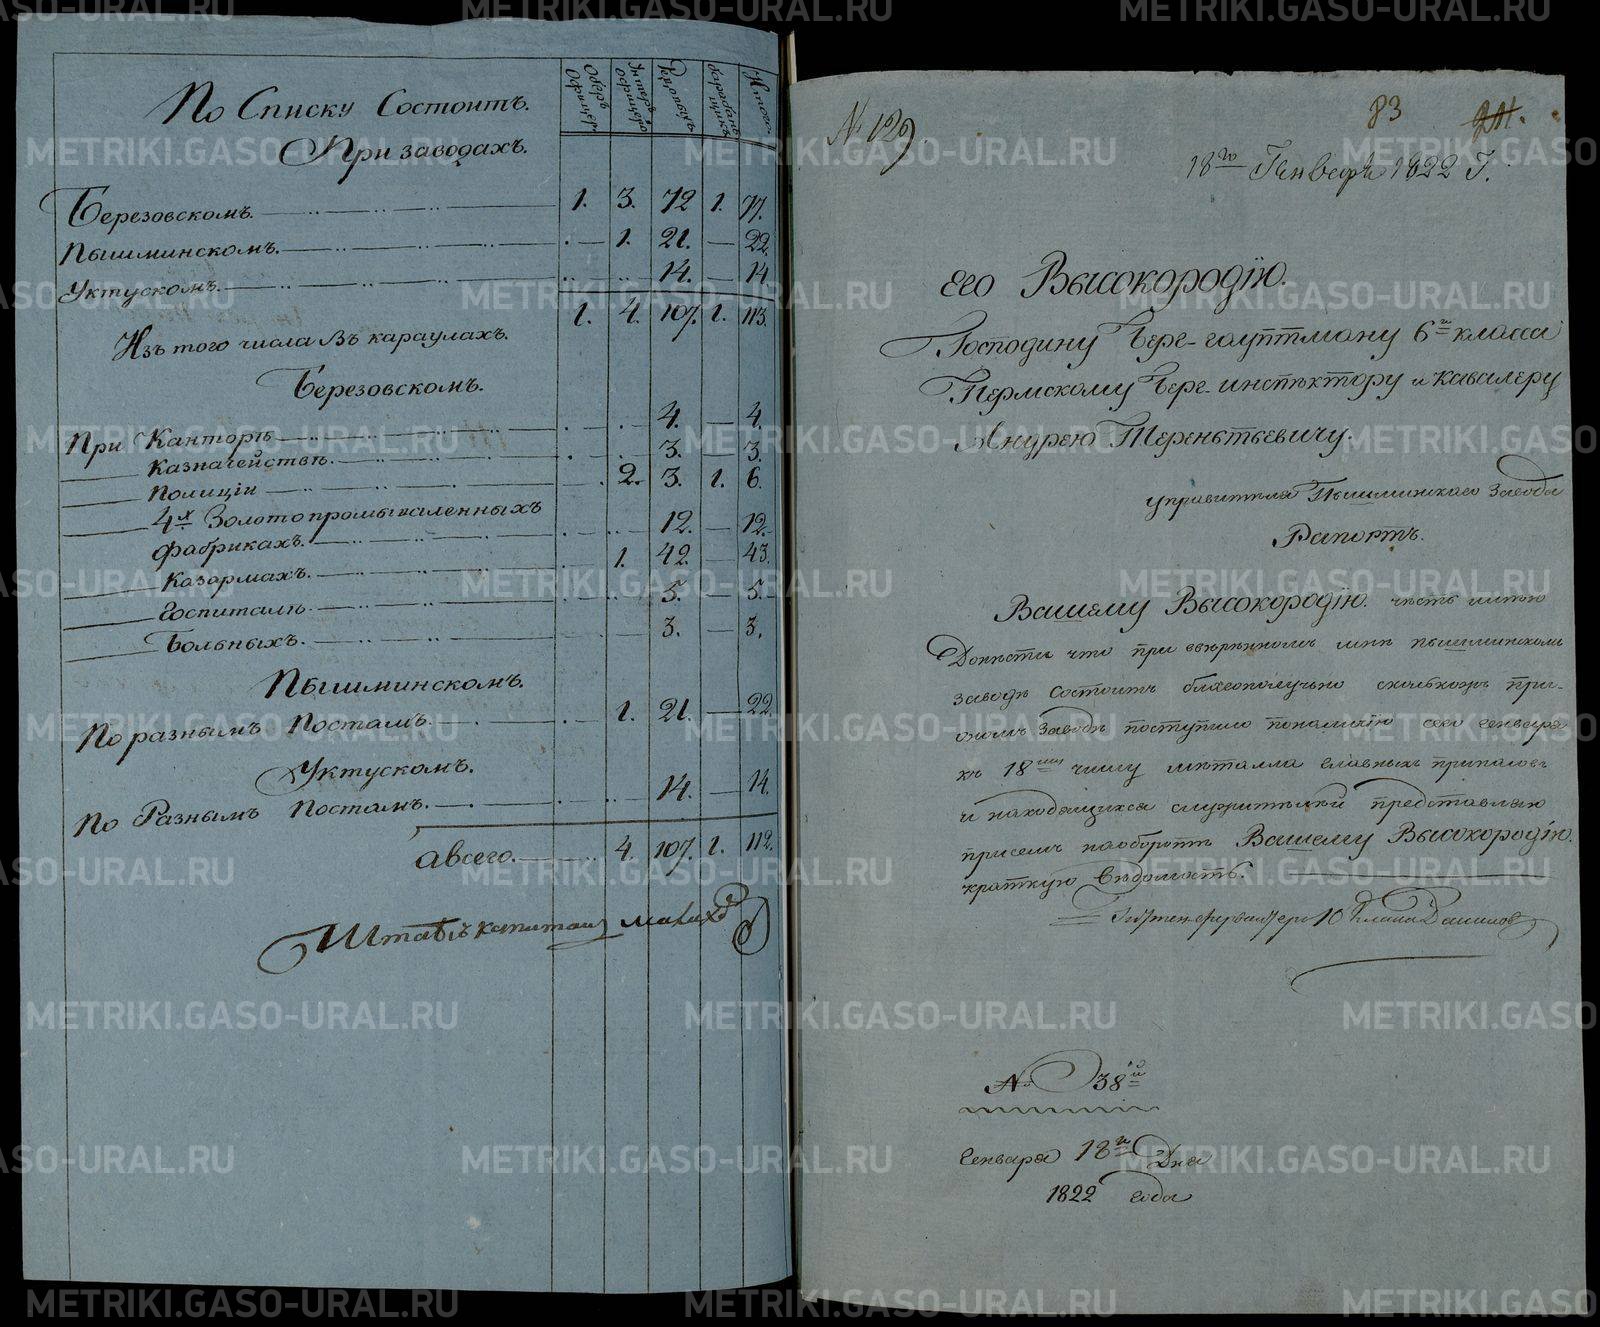 По Списку Состоитъ.
При заводахъ.
Оберъ Офицер
Унтеръ офицеръ
Редовыхъ
барабанщикъ
Итого
Березовскомъ. 1. 3. 72 1. 77.
Пышминскомъ. 1. 21. 22.
Уктускомъ. 14. 14
1. 4. 107. 1. 113.
Изъ того числа въ караулахъ.
Березовскомъ.
При Канторѣ 4. 4.
Казначействѣ. 3. 3.
Полиціи 2. 3. 1. 6.
4х Золотопромываленныхъ
фабрикахъ. 12. 12.
Казармахъ. 1. 42. 43.
Госпиталѣ 5. 5.
Больныхъ. 3. 3.
Пышминскомъ.
По разнымъ постамъ. 1. 21. 22.
Уктускомъ.
По Разнымъ постамъ. 14. 14.
а всего. 4. 107. 1. 112.
Штабсъ капитан
№ 129.
83
18го Генваря 1822 Г.
Его Высокородію.
Господину Берг-гауптману 6го класса
Пермскому Берг-инспектору и кавалеру
Андрею Терентьевичу.
управителя Пышминского завода
Рапортъ.
Вашему Высокородію. честь имею
Донести что при вверенномъ мне пышминскомъ
заводѣ состоитъ благополучно сколькожъ при-
ономъ заводѣ поступило поналичію сего генваря
къ 18му числу металла главныхъ припасовъ
и находящихся служителей представляю
присемъ наоборотѣ Вашему Высокородію.
краткую ведомость.
10 Класса
№ 38й
Генваря 18го Дня
1822 года
METRIKI.GASO-URAL.RU